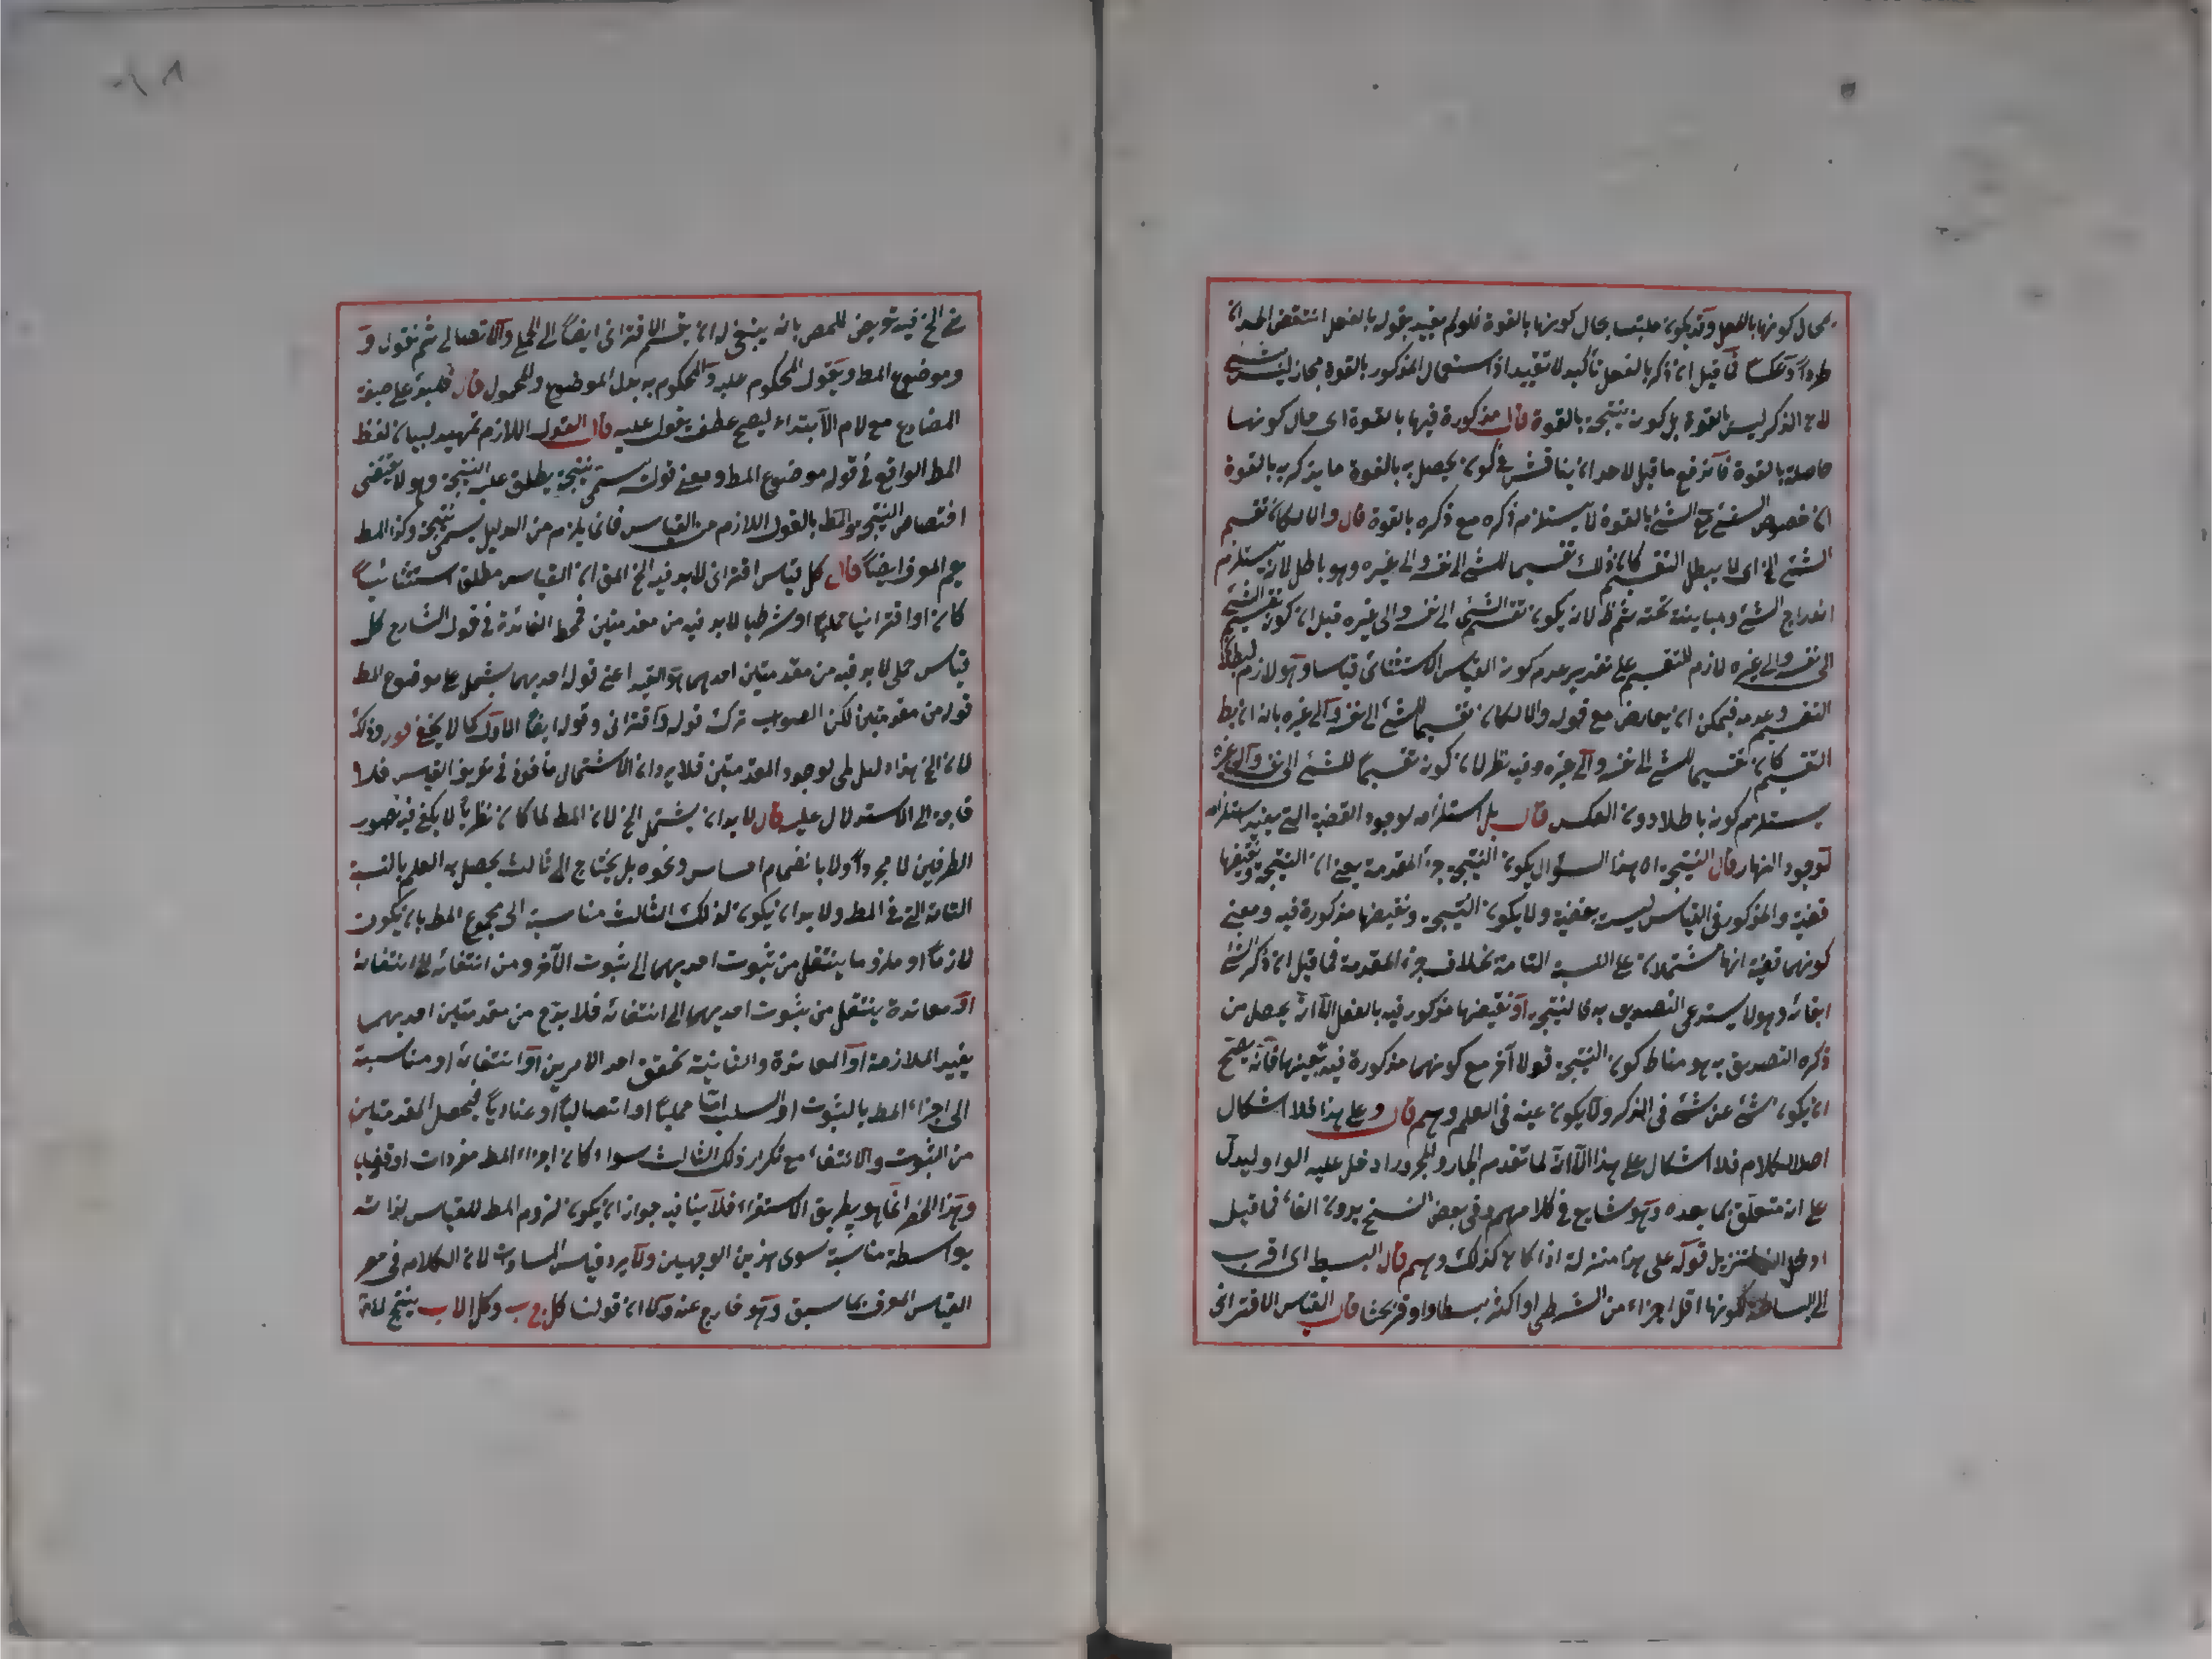 بحال كونها بالفعل وقد يكون ملتبسا بحال كونها بالقوة فلو لم يقيد بقوله بالفعل انتقض الحدان
طردا وعكسا فما قيل ان ذكر بالفعل تأكيد لا تقييد اذ استعمال المذكور بالقوة مجاز ليس بشئ
لان الذكر ليس بالقوة بل كون نتيجة بالقوة قال مذكورة فيها بالقوة اى حال كونها
حاصلة بالقوة فاندفع ما قيل لاحد ان يناقش فى كون يحصل به بالقوة ما يذكر به بالقوة
ان خصوص الشئ مع الشئ بالقوة لا يستلزم ذكره مع ذكره بالقوة قال والا لكان تقسيم
الشئ الخ اى لا يبطل التقسيم كان ذلك تقسيما للشئ الى نفسه والى غيره وهو باطل لانه يستلزم
اندراج الشئ ومباينته تحته ثم ظ لان يكون تقسيم الشئ الى نفسه والى غيره قيل ان كون تقسيم الشئ
الى نفسه والى غيره لازم للتقسيم على تقدير عدم كون القياس الاستثنائى قياسا وهو لازم لبطلان
التقسيم وعدمه فيمكن ان يعارض مع قوله والا لكان تقسيما للشئ الى نفسه والى غيره بانه ان بطل
التقسيم كان تقسيما للشئ الى نفسه والى غيره وفيه نظر لان كون تقسيما للشئ الى نفسه والى غيره
يستلزم كونه باطلا دون العكس قال بل استلزامه لوجود القضية التى يعنى استلزامه
لوجود النهار قال النتيجة اه هذا السؤال يكون النتيجة جزء المقدمة يعنى ان النتيجة ونقيضها
قضية والمذكور فى القياس ليس بقضية ولا يكون النتيجة ونقيضها مذكورة فيه ومعنى
كونهما قضية انهما مشتملان على النسبة التامة بخلاف جزء المقدمة فما قيل ان ذكر الشئ
ايقائه وهو لا يستدعى التصديق به فالنتيجة او نقيضها مذكور فيه بالفعل الا انه يحصل من
ذكره التصديق به هو مناط كون النتيجة قولا آخر مع كونهما مذكورة فيه بعينها فانه يصح
ان يكون شئ عن شئ فى الذكر ولا يكون عينه فى العلم وهم قال وعلى هذا فلا اشكال
اصل الكلام فلا اشكال على هذا الا انه لما تقدم الجار والمجرور ادخل عليه الواو ليدل
على انه متعلق بما بعده وهو شايع فى كلامهم وفى بعض النسخ بدون الفاء فما قيل
ادخل الفاء لتنزيل قوله على هذا منزلة اذا كان كذلك وهم قال البسيط اى اقرب
الى البساطة لكونها اقل اجزاء من الشرطى او اكثر بسطا واوفر بحثا قال القياس الاقترانى
فى الخ فيه تعريض للمصر بانه ينبغى له ان يقسم الاقترانى ايضا الى الحملى والاتصالى ثم نقول و
وموضوع المط ويقول المحكوم عليه والمحكوم به بدل الموضوع والمحمول قال فلبيؤ على صيغة
المضارع مع لام الابتداء ليصح عطف يقول عليه قال القول اللازم تمهيد لبيان لفظ
المط الواقع فى قوله موضوع المط ومعنى قوله سمى نتيجة يطلق عليه النتيجة وهو لا يقتضى
اختصاص النتيجة والمط بالقول اللازم من القياس فان ما يلزم من الدليل يسمى نتيجة وكذا المط
يعم الموف ايضا قال كل قياس اقترانى لابد فيه الخ الحق ان القياس مطلق استثنائيا
كان او اقترانيا حمليا او شرطيا لابد فيه من مقدمتين فمحط الفائدة فى قول الشارع كل
قياس حملى لابد فيه من مقدمتين احدهما هو القيد اعنى قوله احديهما يشتمل على موضوع المط
قوله من مقدمتين لكن الصواب ترك قوله واقترانى وقوله ايضا الاول كما لا يخفى قوله وذلك
لان الخ هذا دليل لمى لوجود المقدمتين فلا يرد ان الاشتمال مأخوذ فى تعريف القياس فلا
حاجة الى الاستدلال عليه قال لابد ان يشتمل الخ لان المط لما كان نظريا لا يكفى فيه تصور
الطرفين لا مجردا ولا بانضمام احساس ونحوه بل يحتاج الى ثالث يحصل به العلم بالنسبة
التامة التى فى المط ولابد ان يكون لذلك الثالث مناسبة الى مجموع المط بان يكون
لازما او ملزوما ينتقل من ثبوت احديهما الى ثبوت الآخر ومن انتفائه الى انتفائه
او معاندة ينتقل من ثبوت احديهما الى انتفائه فلا بد ح من مقدمتين احديهما
يفيد الملازمة او المعاندة والثانية تحقق احد الامرين او انتفائه او مناسبة
الى اجزاء المط بالثبوت او السلب اما حمليا او اتصاليا او عناديا فيحصل المقدمتين
من الثبوت والانتفاء مع تكرار ذلك الثالث سواء كان اجزاء المط مفردات او قضايا
وهذا الحصر انما هو بطريق الاستقراء فلا ينافيه جواز ان يكون لزوم المط للقياس لذاته
بواسطة مناسبة سوى هذين الوجهين ولا يرد قياس المساوات لان الكلام فى
القياس المعرف بما سبق وهو خارج عنه وكذا ان قولنا كل ج ب وكل الا ب ينتج لان